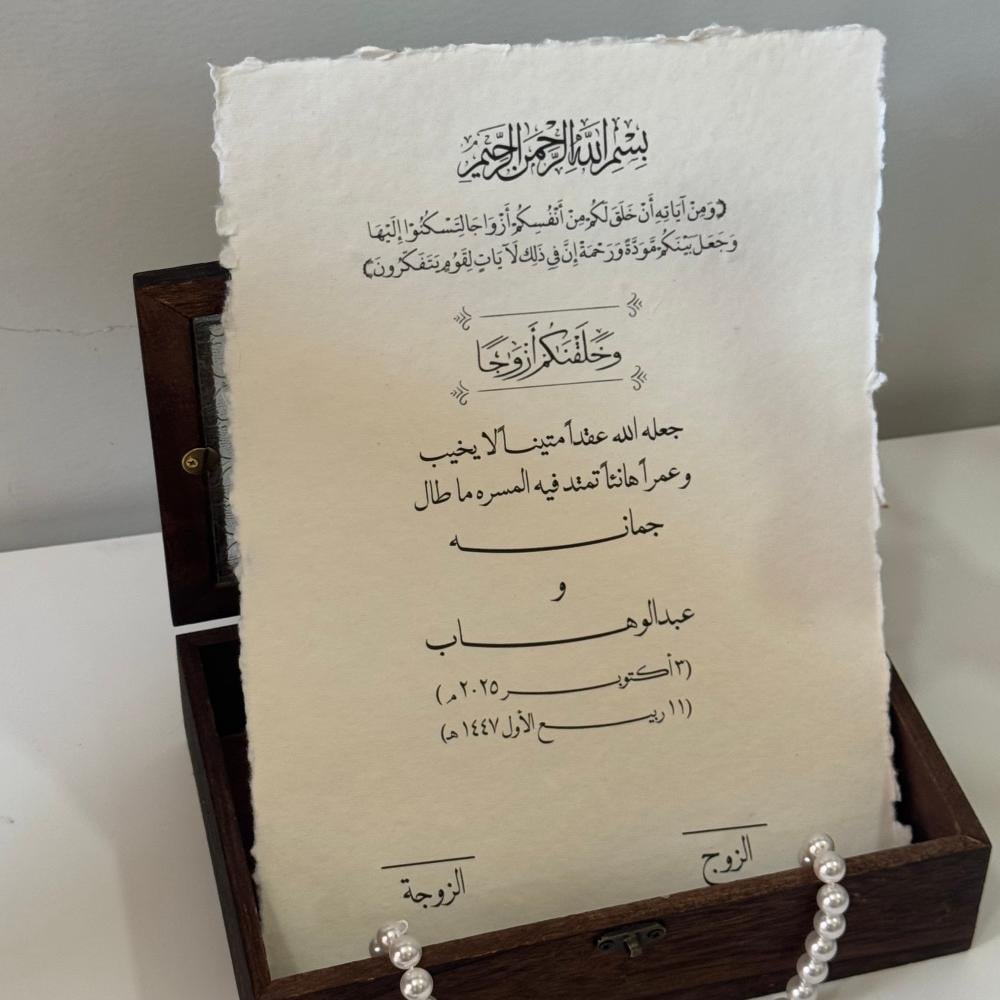 بسم الله الرحمن الرحيم
﴿وَمِنْ آيَاتِهِ أَنْ خَلَقَ لَكُم مِنْ أَنْفُسِكُمْ أَزْوَاجًا لِتَسْكُنُوا إِلَيْهَا
وَجَعَلَ بَيْنَكُم مَّوَدَّةً وَرَحْمَةً إِنَّ فِي ذَلِكَ لَآيَاتٍ لِقَوْمٍ يَتَفَكَّرُونَ﴾
وَخَلَقْنَٰكُمْ أَزْوَٰجًا
جعله الله عقداً متيناً لا يخيب
وعمراً هانئاً تمتد فيه المسره ما طال
جمانه
و
عبدالوهاب
(٣ أكتوبر ٢٠٢٥ م)
(١١ ربيع الأول ١٤٤٧ هـ)
الزوج
الزوجة